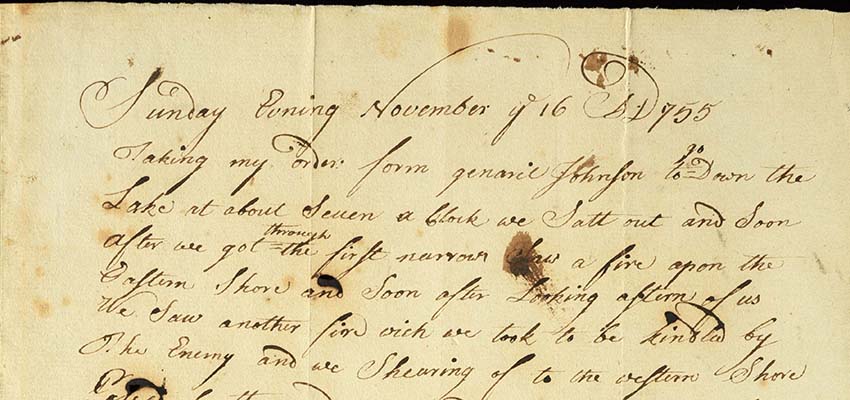 Sunday Evning November ye 16 AD 1755
Taking my order form genaril Johnson to go Down the
Lake at about Seven a Clock we Satt out and Soon
after we got through the first narrow Saw a fire apon the
Eastern Shore and Soon after Looking astern of us
We Saw another fire wich we took to be kindled by
The Enemy and we Shearing of to the western Shore